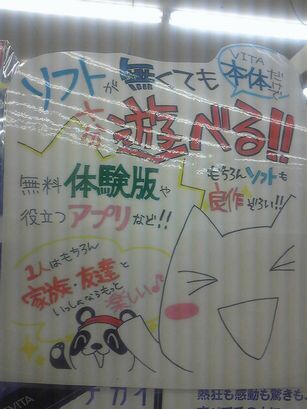 ソフトが無くても
VITA
本体だけで
十分
遊べる!!
無料体験版や
役立つアプリなど!!
もちろんソフトも
良作ぞろい!!
1人はもちろん
家族・友達と
いっしょならもっと
楽しい♪
熱狂も感動も驚きも